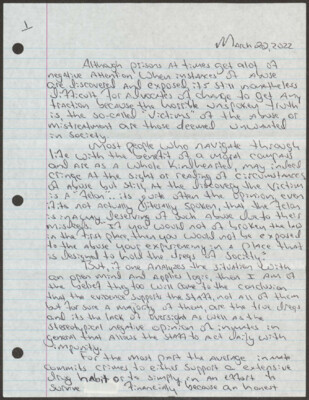 1
March 20, 2022
Although prisons at times get alot of
negative attention when instances of abuse
are discovered and exposed, it's still nonetheless
difficult for advocates of change to get any
traction because the horrible unspoken truth
is, the so-called "victims" of the abuse or
mistreatment are those deemed unwanted
in society.
Most people who navigate through
life with the benefit of a moral compass
and are as a whole kindhearted, may indeed
cringe at the sight or reading of circumstances
of abuse but still, at the discovery the victim
is a "felon"... its quite often the opinion even
if its not actually openly spoken, that the "felon"
is in a way deserving of such abuse due to their
misdeeds. "If you would not of broken the law
in the first place, then you would not be exposed
to the abuse your experiencing in a place that
is designed to hold the dregs of society."
But, if one analyzes the situation with
an open mind and applies logic, then I am of
the belief they too will come to the conclusion
that the evidence supports the staff, not all of them
but for sure a majority of them are the true dregs
and its the lack of oversight as well as the
stereotypical negative opinion of inmates in
general that allows the staff to act only with
impunity.
For the most part the average inmate
commits crimes to either support a extensive
drug habit or to simply in an effort to
survive financially because an honest